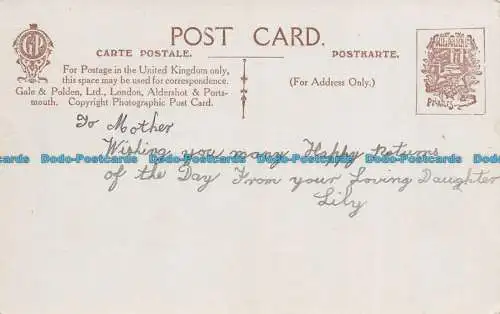 POST CARD.
CARTE POSTALE.
POSTKARTE.
For Postage in the United Kingdom only,
this space may be used for correspondence.
Gale & Polden, Ltd., London, Aldershot & Ports-
mouth. Copyright Photographic Post Card.
(For Address Only.)
G&P
To Mother
Wishing you many Happy returns
of the Day From your Loving Daughter
Lily
Dodo-Postcards Dodo-Postcards Dodo-Postcards Dodo-Postcards